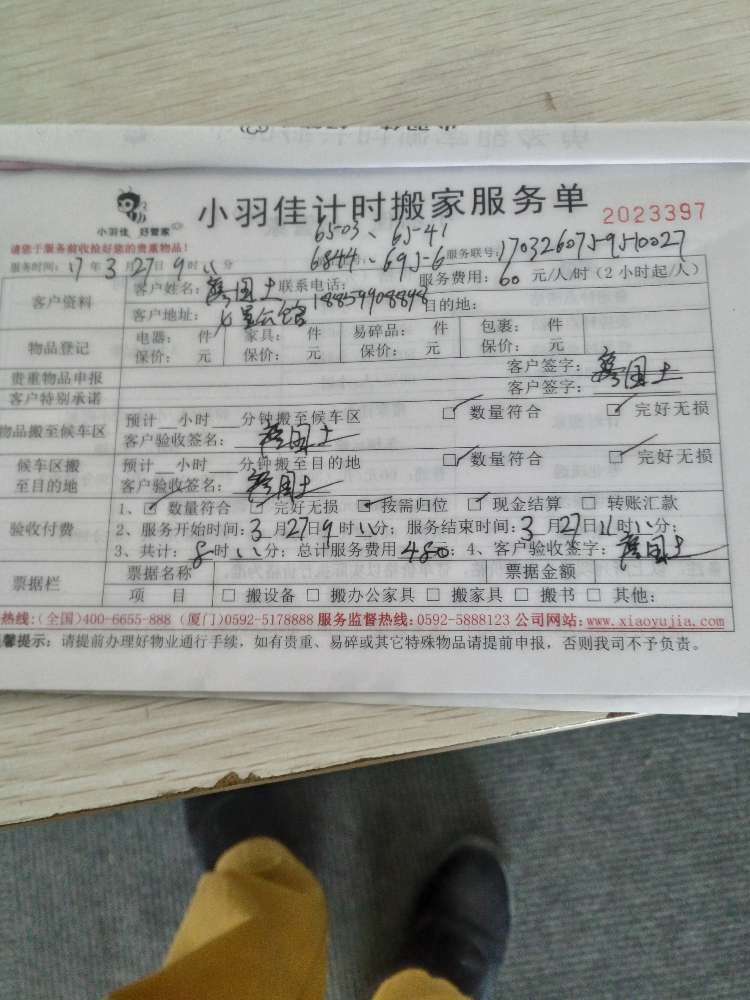 小羽佳 好管家
小羽佳计时搬家服务单 2023397
请您于服务前收捡好您的贵重物品!
6503、6541
6844、695-6 服务联号:170326075-9510027
服务时间:17年3月27日9时八分
服务费用:60元/人/时(2小时起/人)
客户资料 客户姓名: 国土 联系电话:18859908898
客户地址: 七星公馆 目的地:
物品登记 电器: 件 家具: 件 易碎品: 件 包裹: 件
保价: 元 保价: 元 保价: 元 保价: 元
贵重物品申报 客户签字: 国土
客户特别承诺 客户签字:
物品搬至候车区 预计__小时__分钟搬至候车区 ☑ 数量符合 ☑ 完好无损
客户验收签名: 国土
候车区搬至目的地 预计__小时__分钟搬至目的地 ☑ 数量符合 ☑ 完好无损
客户验收签名: 国土
验收付费 1、☑ 数量符合 ☑ 完好无损 ☑ 按需归位 ☑ 现金结算 □ 转账汇款
2、服务开始时间:3月27日9时八分;服务结束时间:3月27日11时八分;
3、共计:8时八分;总计服务费用480元;4、客户验收签字: 国土
票据栏 票据名称 票据金额
项 目 □ 搬设备 □ 搬办公家具 □ 搬家具 □ 搬书 □ 其他:
热线:(全国)400-6655-888 (厦门)0592-5178888 服务监督热线:0592-5888123 公司网站:www.xiaoyujia.com
馨提示:请提前办理好物业通行手续,如有贵重、易碎或其它特殊物品请提前申报,否则我司不予负责。